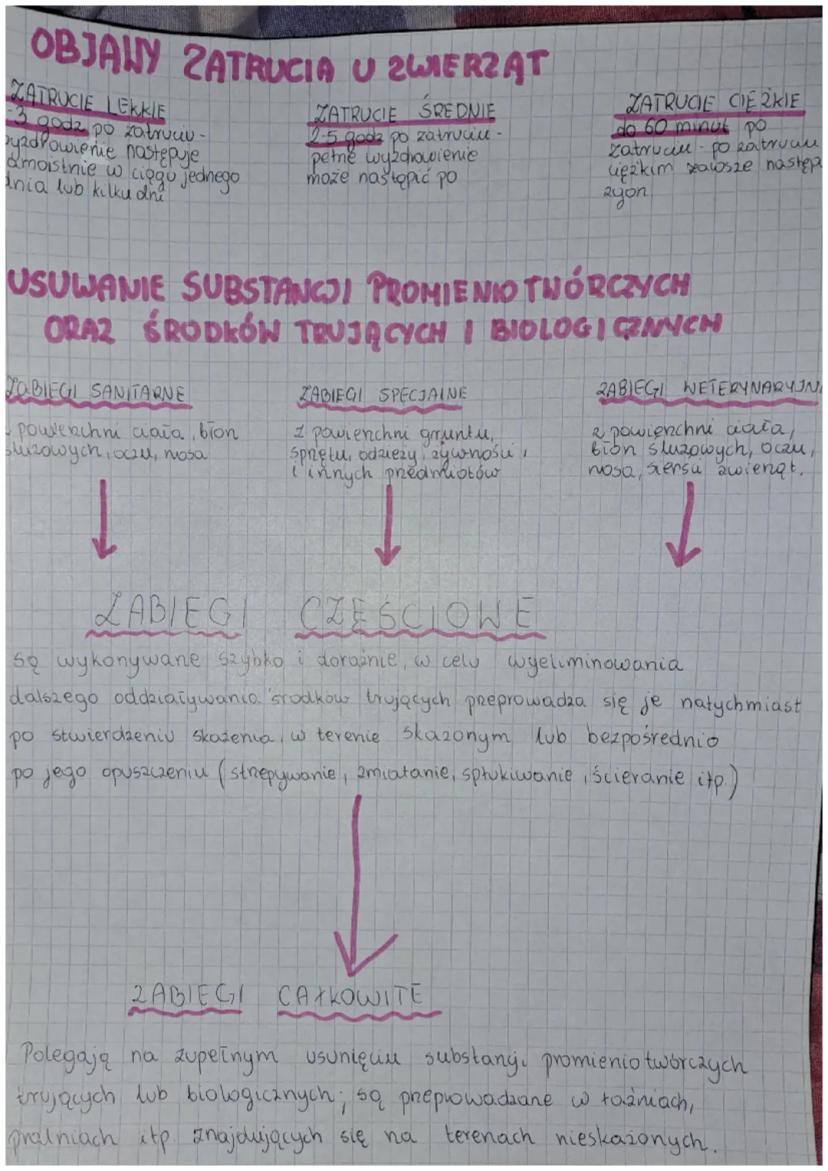 OBJAWY ZATRUCIA U ZWIERZĄT
ZATRUCIE LEKKIE
-3 godz po zatruciu -
wyzdrowienie następuje
amoistnie w ciągu jednego
dnia lub kilku dni
ZATRUCIE ŚREDNIE
2-5 godz po zatruciu -
pełne wyzdrowienie
może nastąpić po
ZATRUCIE CIĘŻKIE
do 60 minut po
zatruciu - po zatruciu
ciężkim zawsze następ
zgon
USUWANIE SUBSTANCJI PROMIENIOTWÓRCZYCH
ORAZ ŚRODKÓW TRUJĄCYCH I BIOLOGICZNYCH
ZABIEGI SANITARNE
powierzchni ciała, błon
śluzowych, oczu, nosa
ZABIEGI SPECJALNE
z powierzchni gruntu,
sprzętu, odzieży, żywności,
i innych przedmiotów
ZABIEGI WETERYNARYJN
z powierzchni ciała,
błon śluzowych, oczu,
nosa, siersci zwierząt.
ZABIEGI CZĘŚCIOWE
są wykonywane szybko i doraźnie, w celu wyeliminowania
dalszego oddziaływania środków trujących przeprowadza się je natychmiast
po stwierdzeniu skażenia, w terenie skażonym lub bezpośrednio
po jego opuszczeniu (strzepywanie, zmiatanie, spłukiwanie, ścieranie itp.)
ZABIEGI CAŁKOWITE
Polegają na zupełnym usunięciu substancji promieniotwórczych
trujących lub biologicznych; są przeprowadzane w łaźniach,
pralniach itp znajdujących się na terenach nieskażonych.